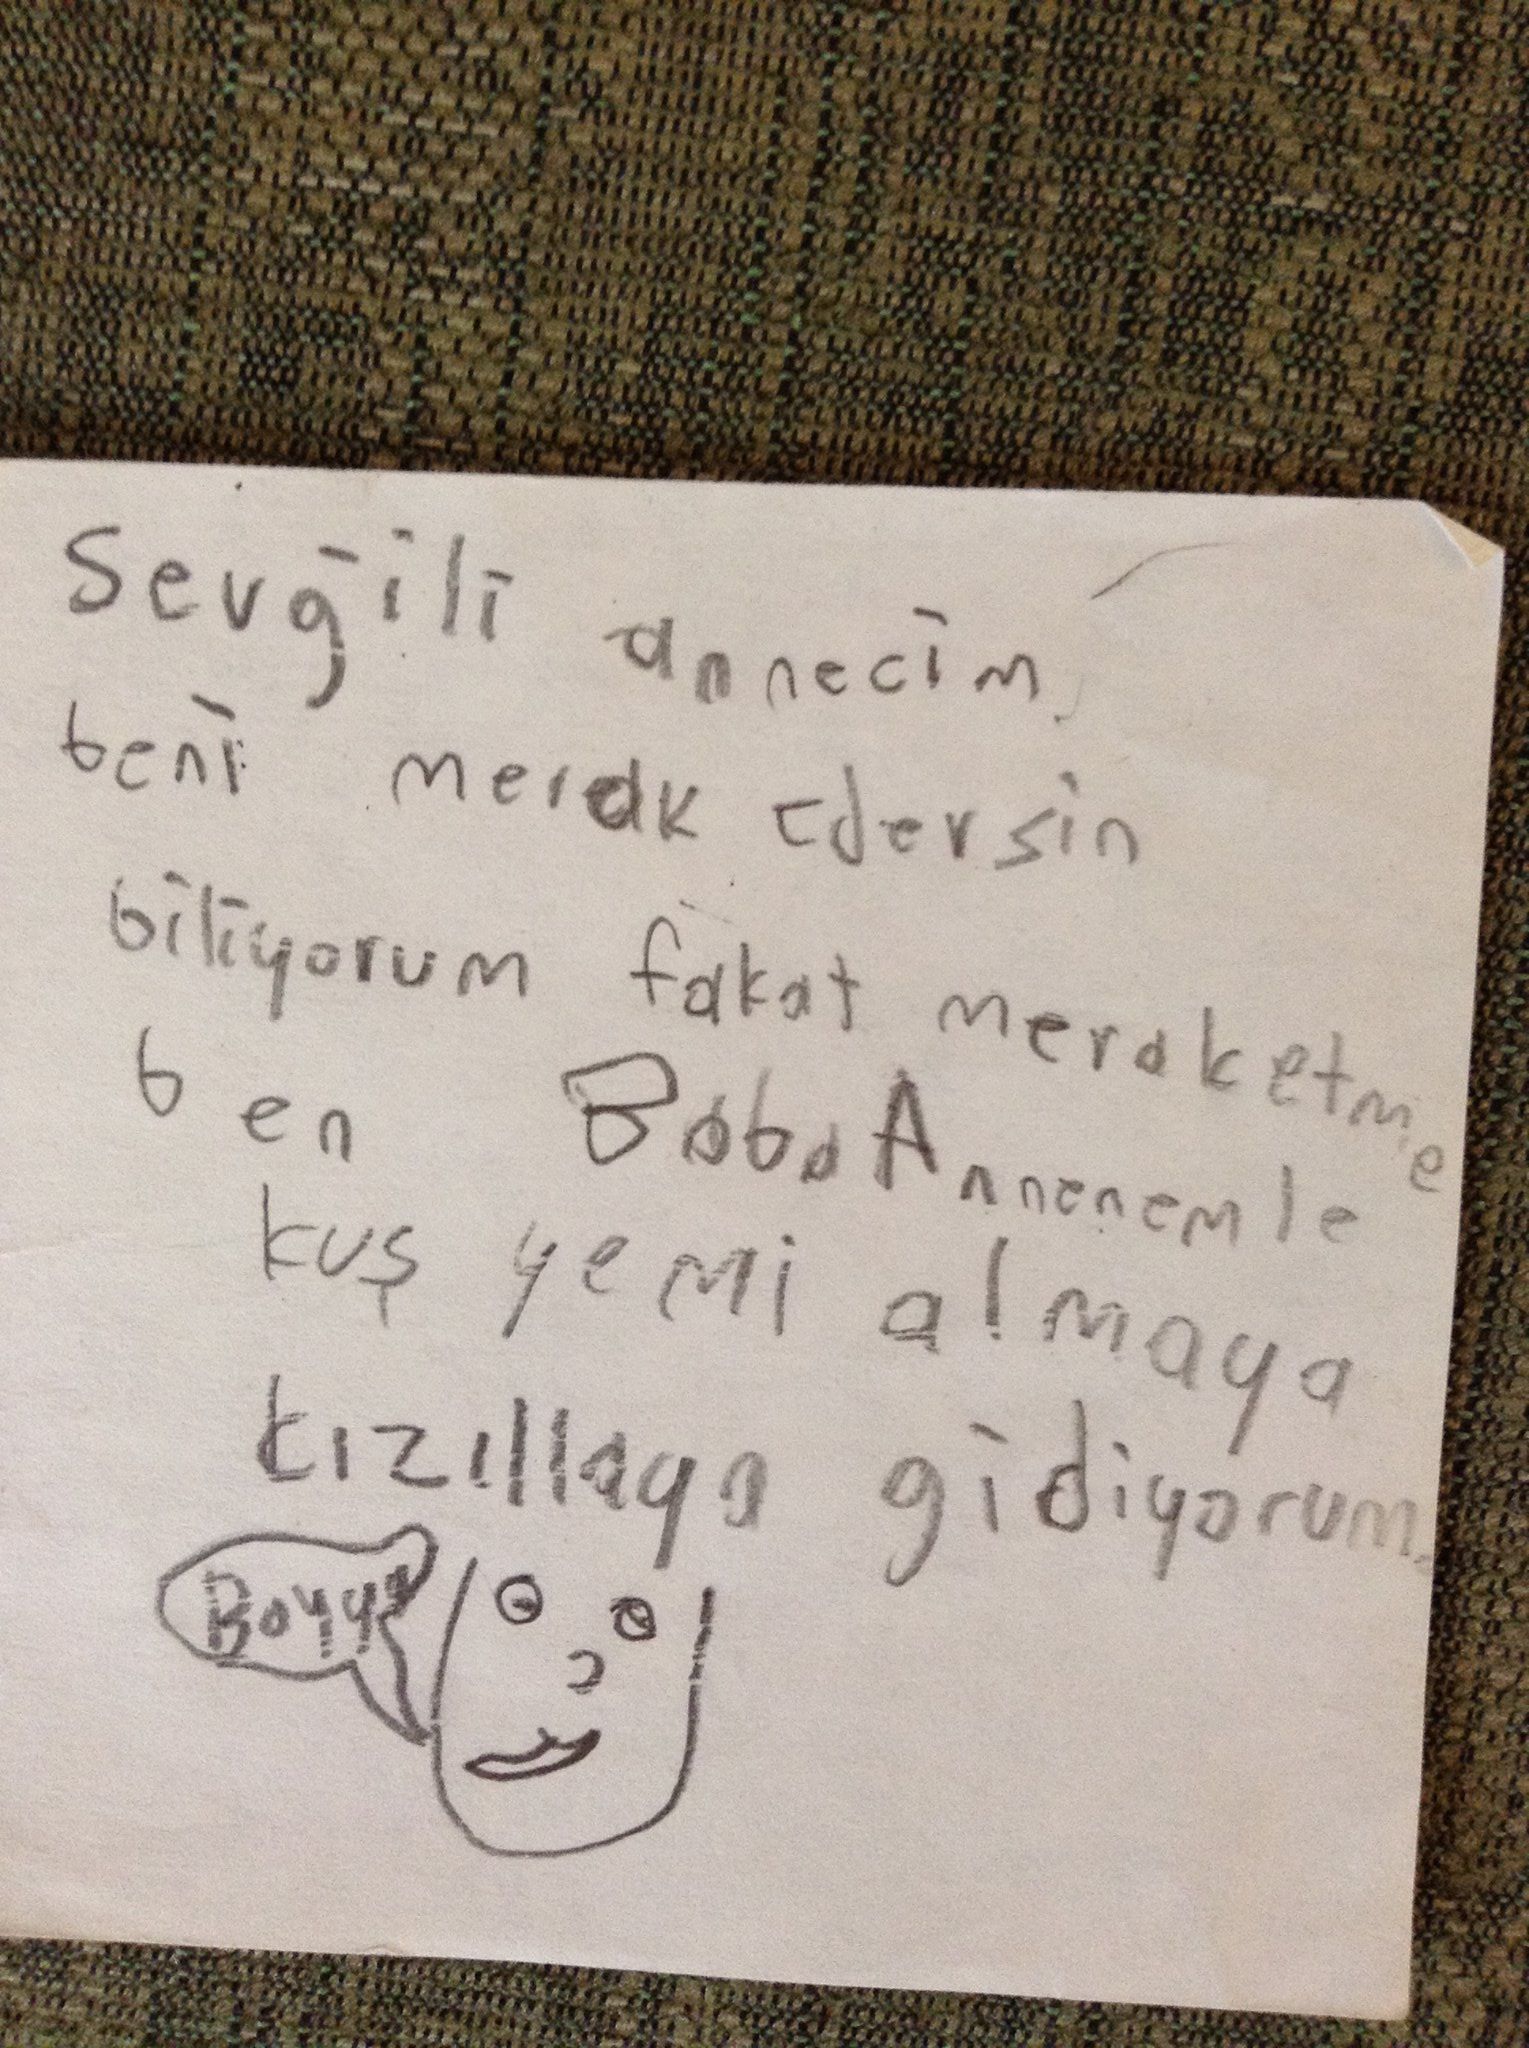 Sevgili annecim,
beni merak edersin
biliyorum fakat meraketme
ben BabaAnnenemle
kuş yemi almaya
kızıllaya gidiyorum.
Boyya